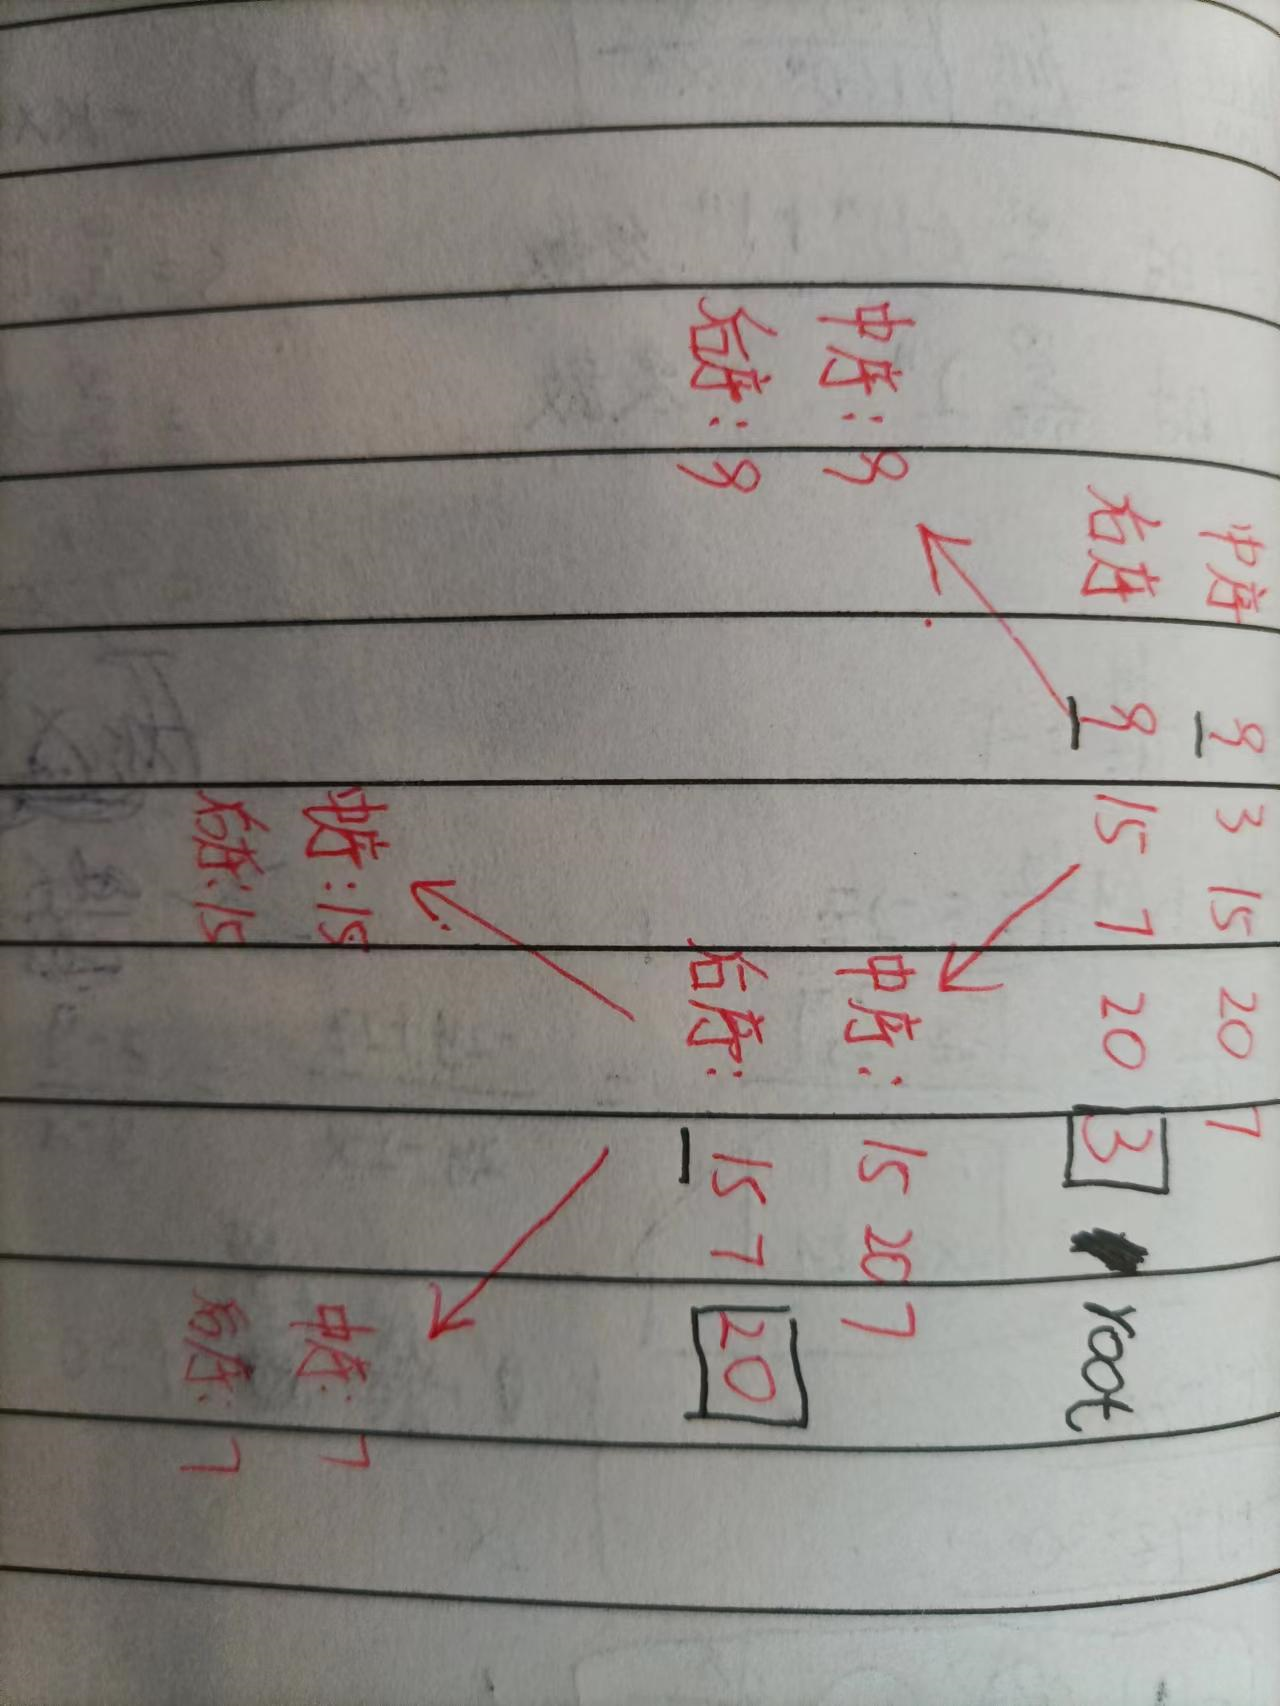 中序 9 3 15 20 7
右序 9 15 7 20 3 root
中序：9
后序：9
中序： 15 20 7
后序： 15 7 20
中序：15
后序：15
中序：7
后序：7